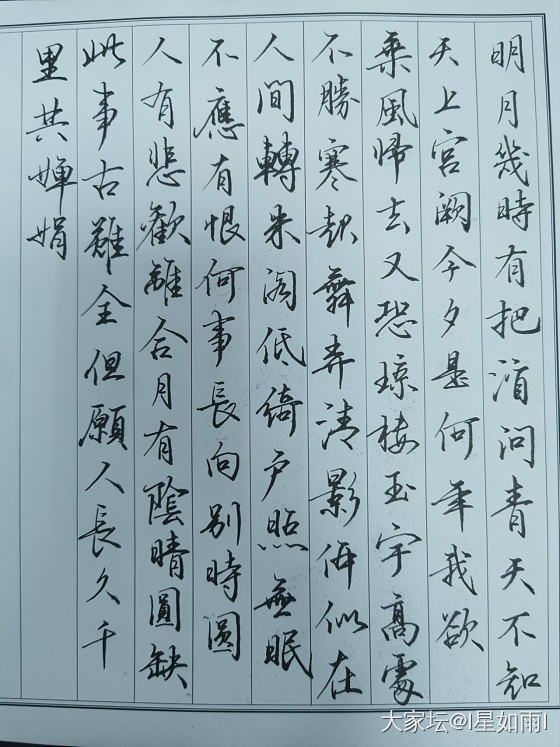 明月幾時有把酒問青天不知
天上宮闕今夕是何年我欲
乘風歸去又恐琼樓玉宇高處
不勝寒起舞弄清影何似在
人間轉朱阁低綺户照無眠
不應有恨何事長向别時圓
人有悲歡離合月有陰晴圓缺
此事古難全但願人長久千
里共嬋娟
大家坛@I星如雨I